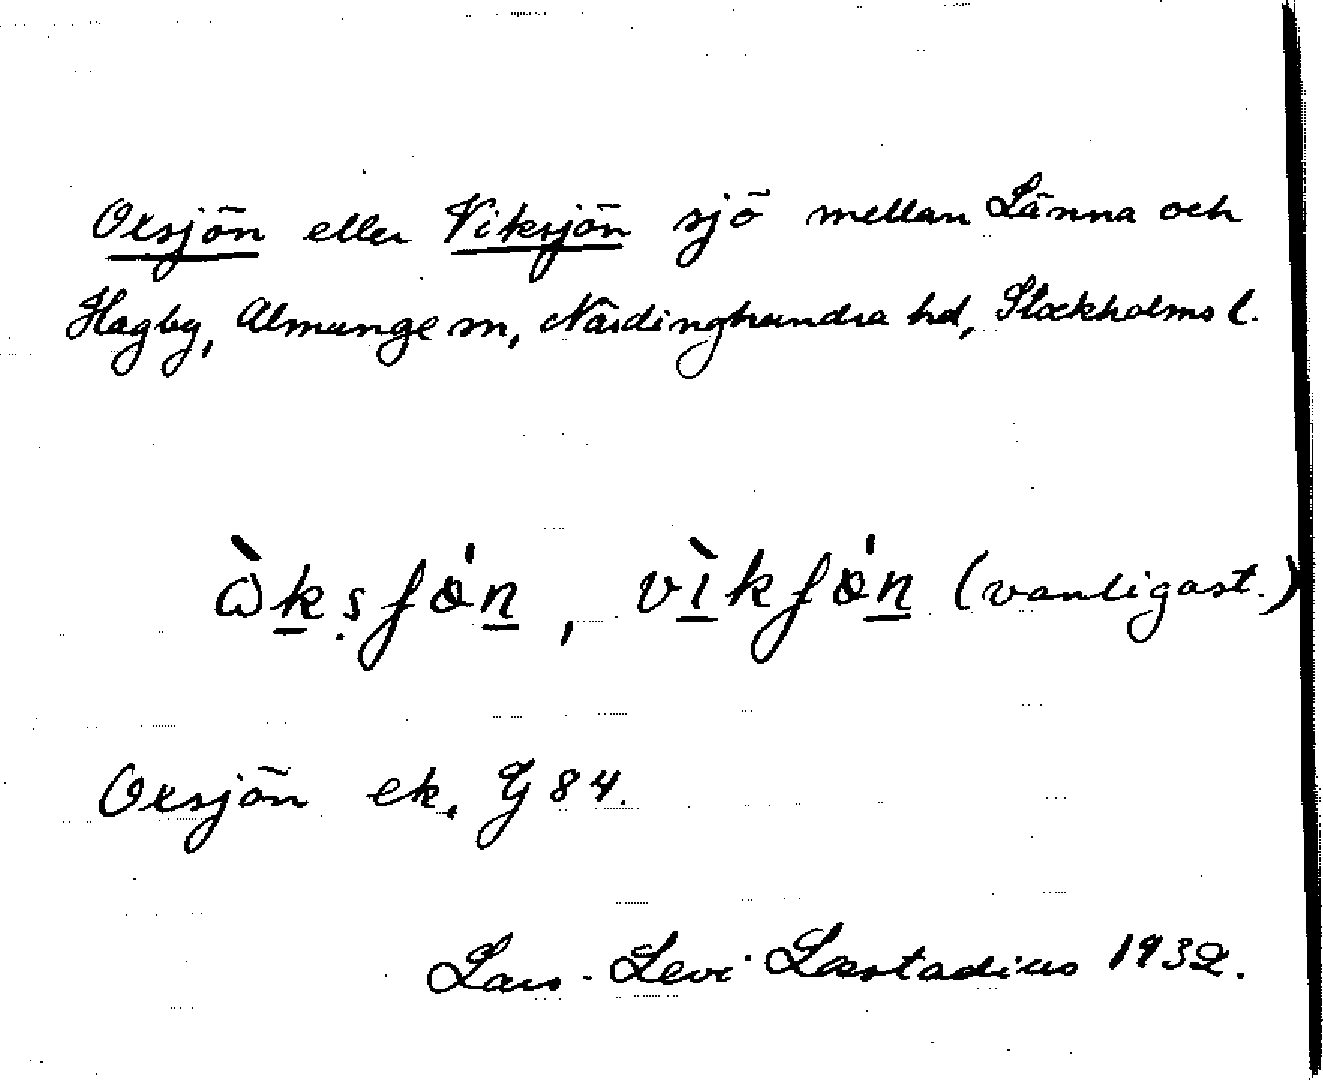 Oxsjön eller Viksjön sjö mellan Länna och
Hagby, Almunge sn, Närdinghundra hd, Stockholms l.
ὼkṣʃön, vìkʃön (vanligast.)
Oxsjön ek. G 84.
Lars-Levi Læstadius 1932.